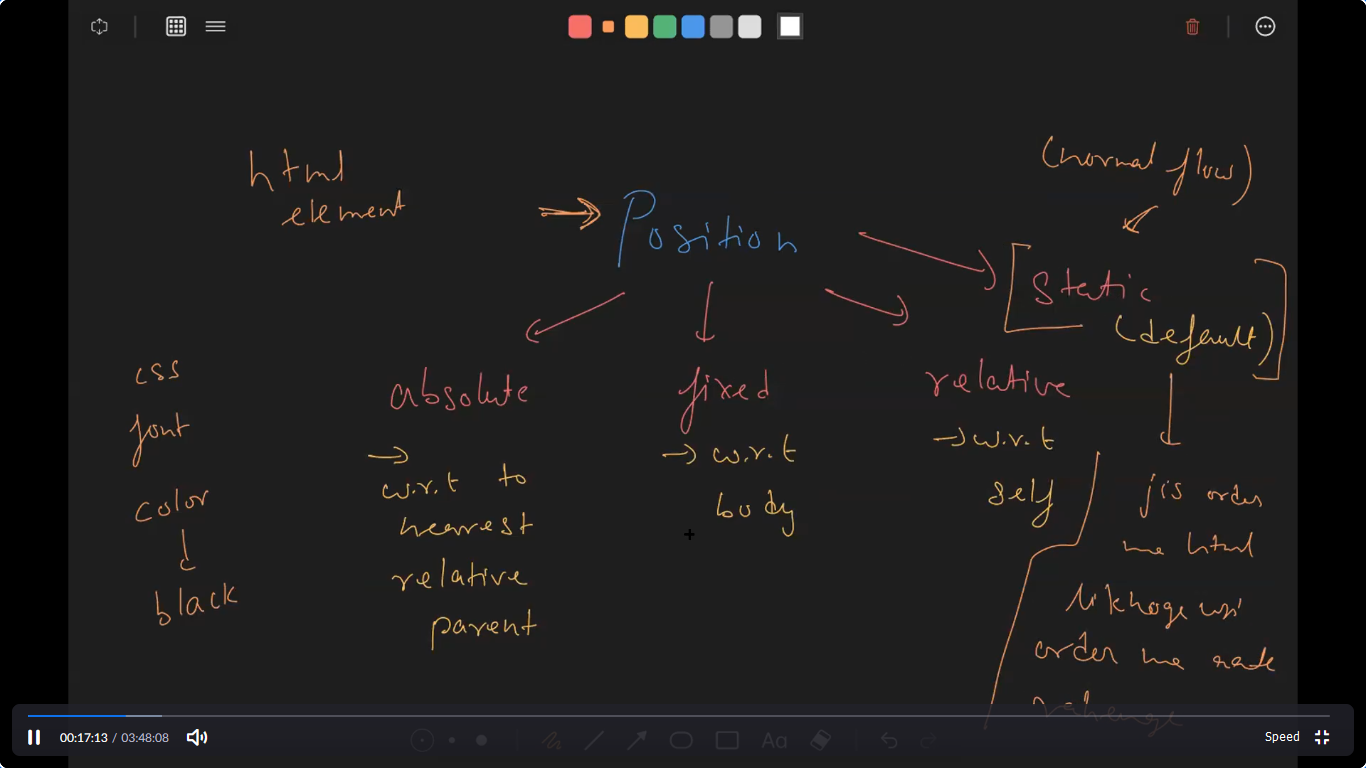 (normal flow)
html
element
Position
Static
(default)
css
font
color
black
absolute
→
w.r.t to
nearest
relative
parent
fixed
→ w.r.t
body
relative
→ w.r.t
self
jis order
me html
likhoge usi
order me
rahenge
00:17:13 / 03:48:08
Speed
Aa